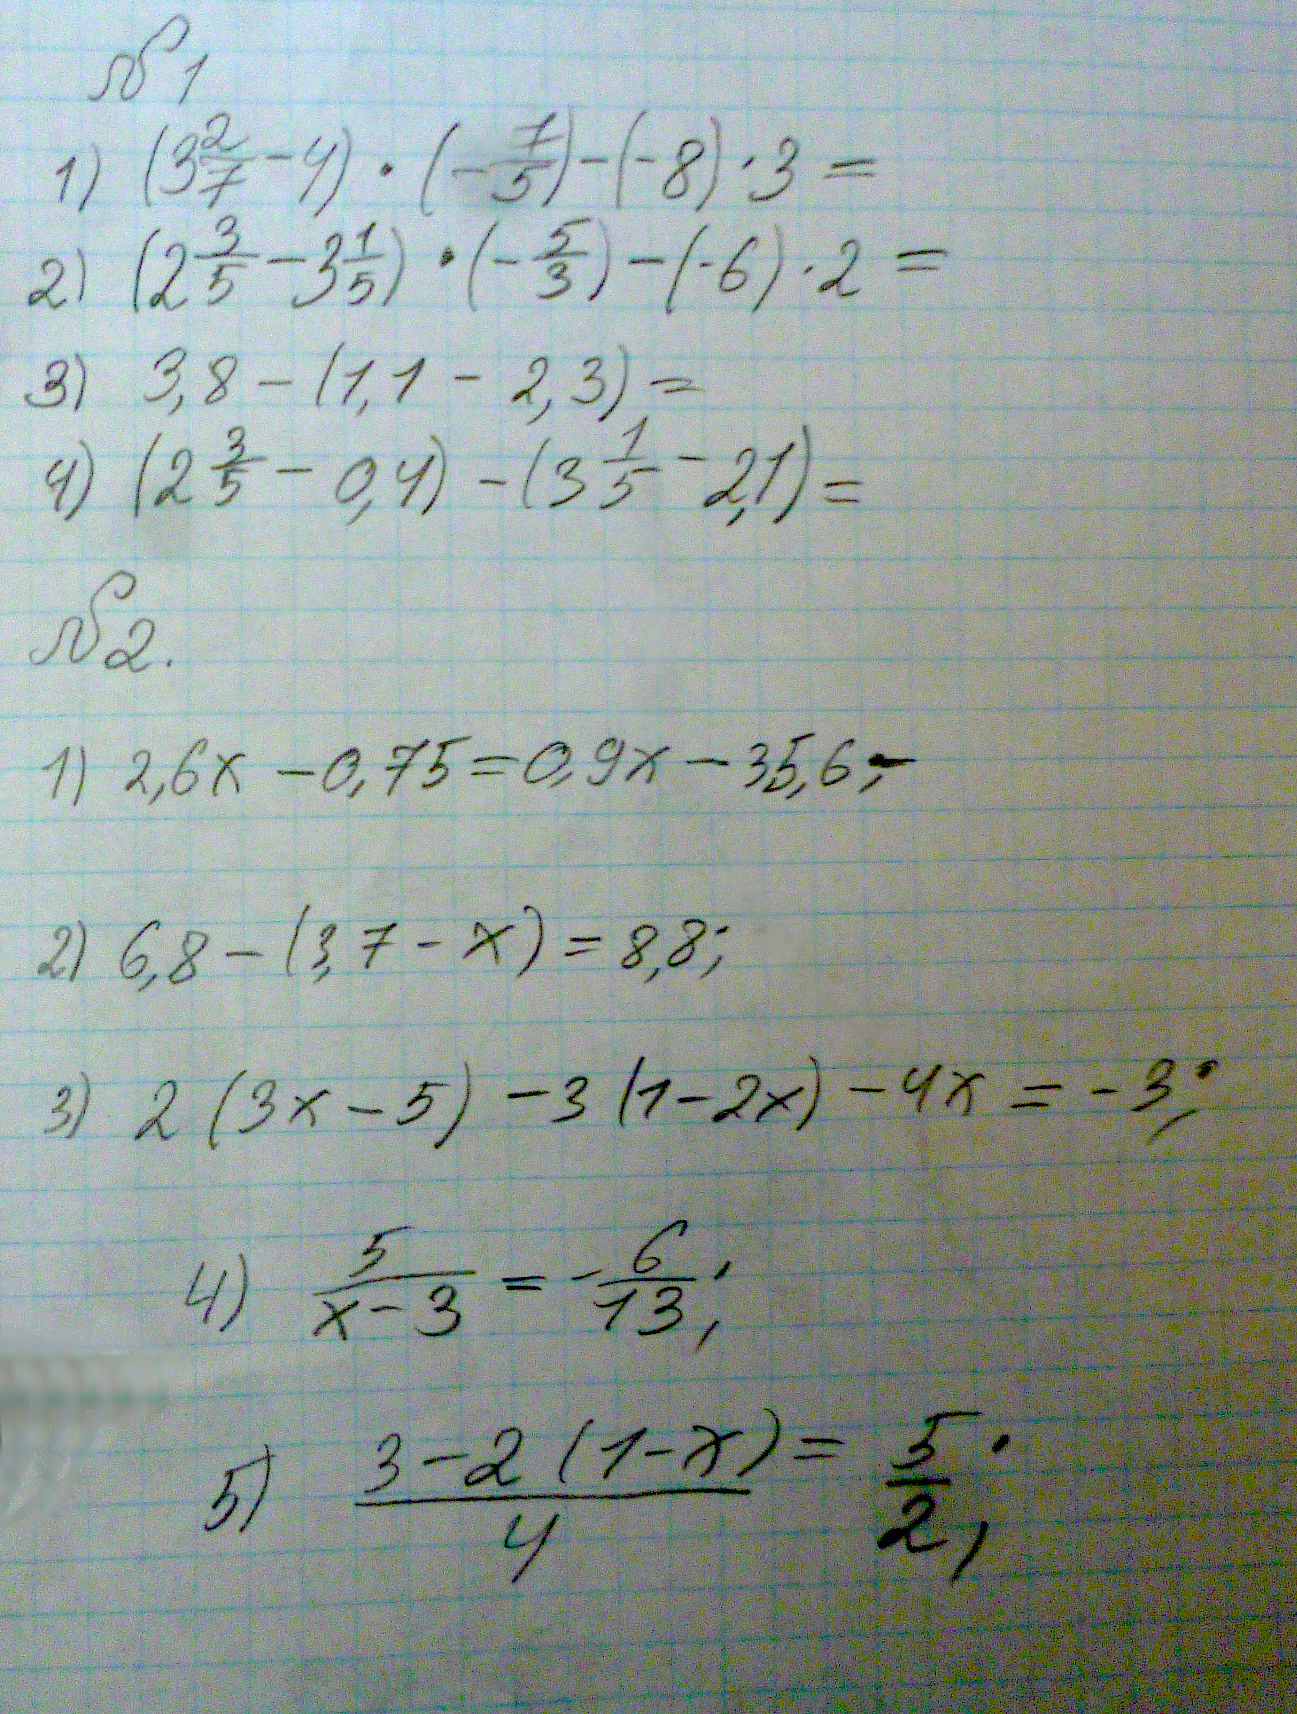 №1
1) (3 2/7 - 4) · (- 7/5) - (-8) · 3 =
2) (2 3/5 - 3 1/5) · (- 5/3) - (-6) · 2 =
3) 3,8 - (1,1 - 2,3) =
4) (2 3/5 - 0,4) - (3 1/5 - 2,1) =
№2.
1) 2,6x - 0,75 = 0,9x - 35,6;
2) 6,8 - (3,7 - x) = 8,8;
3) 2 (3x - 5) - 3 (1 - 2x) - 4x = -3;
4) 5/(x - 3) = - 6/13;
5) (3 - 2 (1 - x))/4 = 5/2;